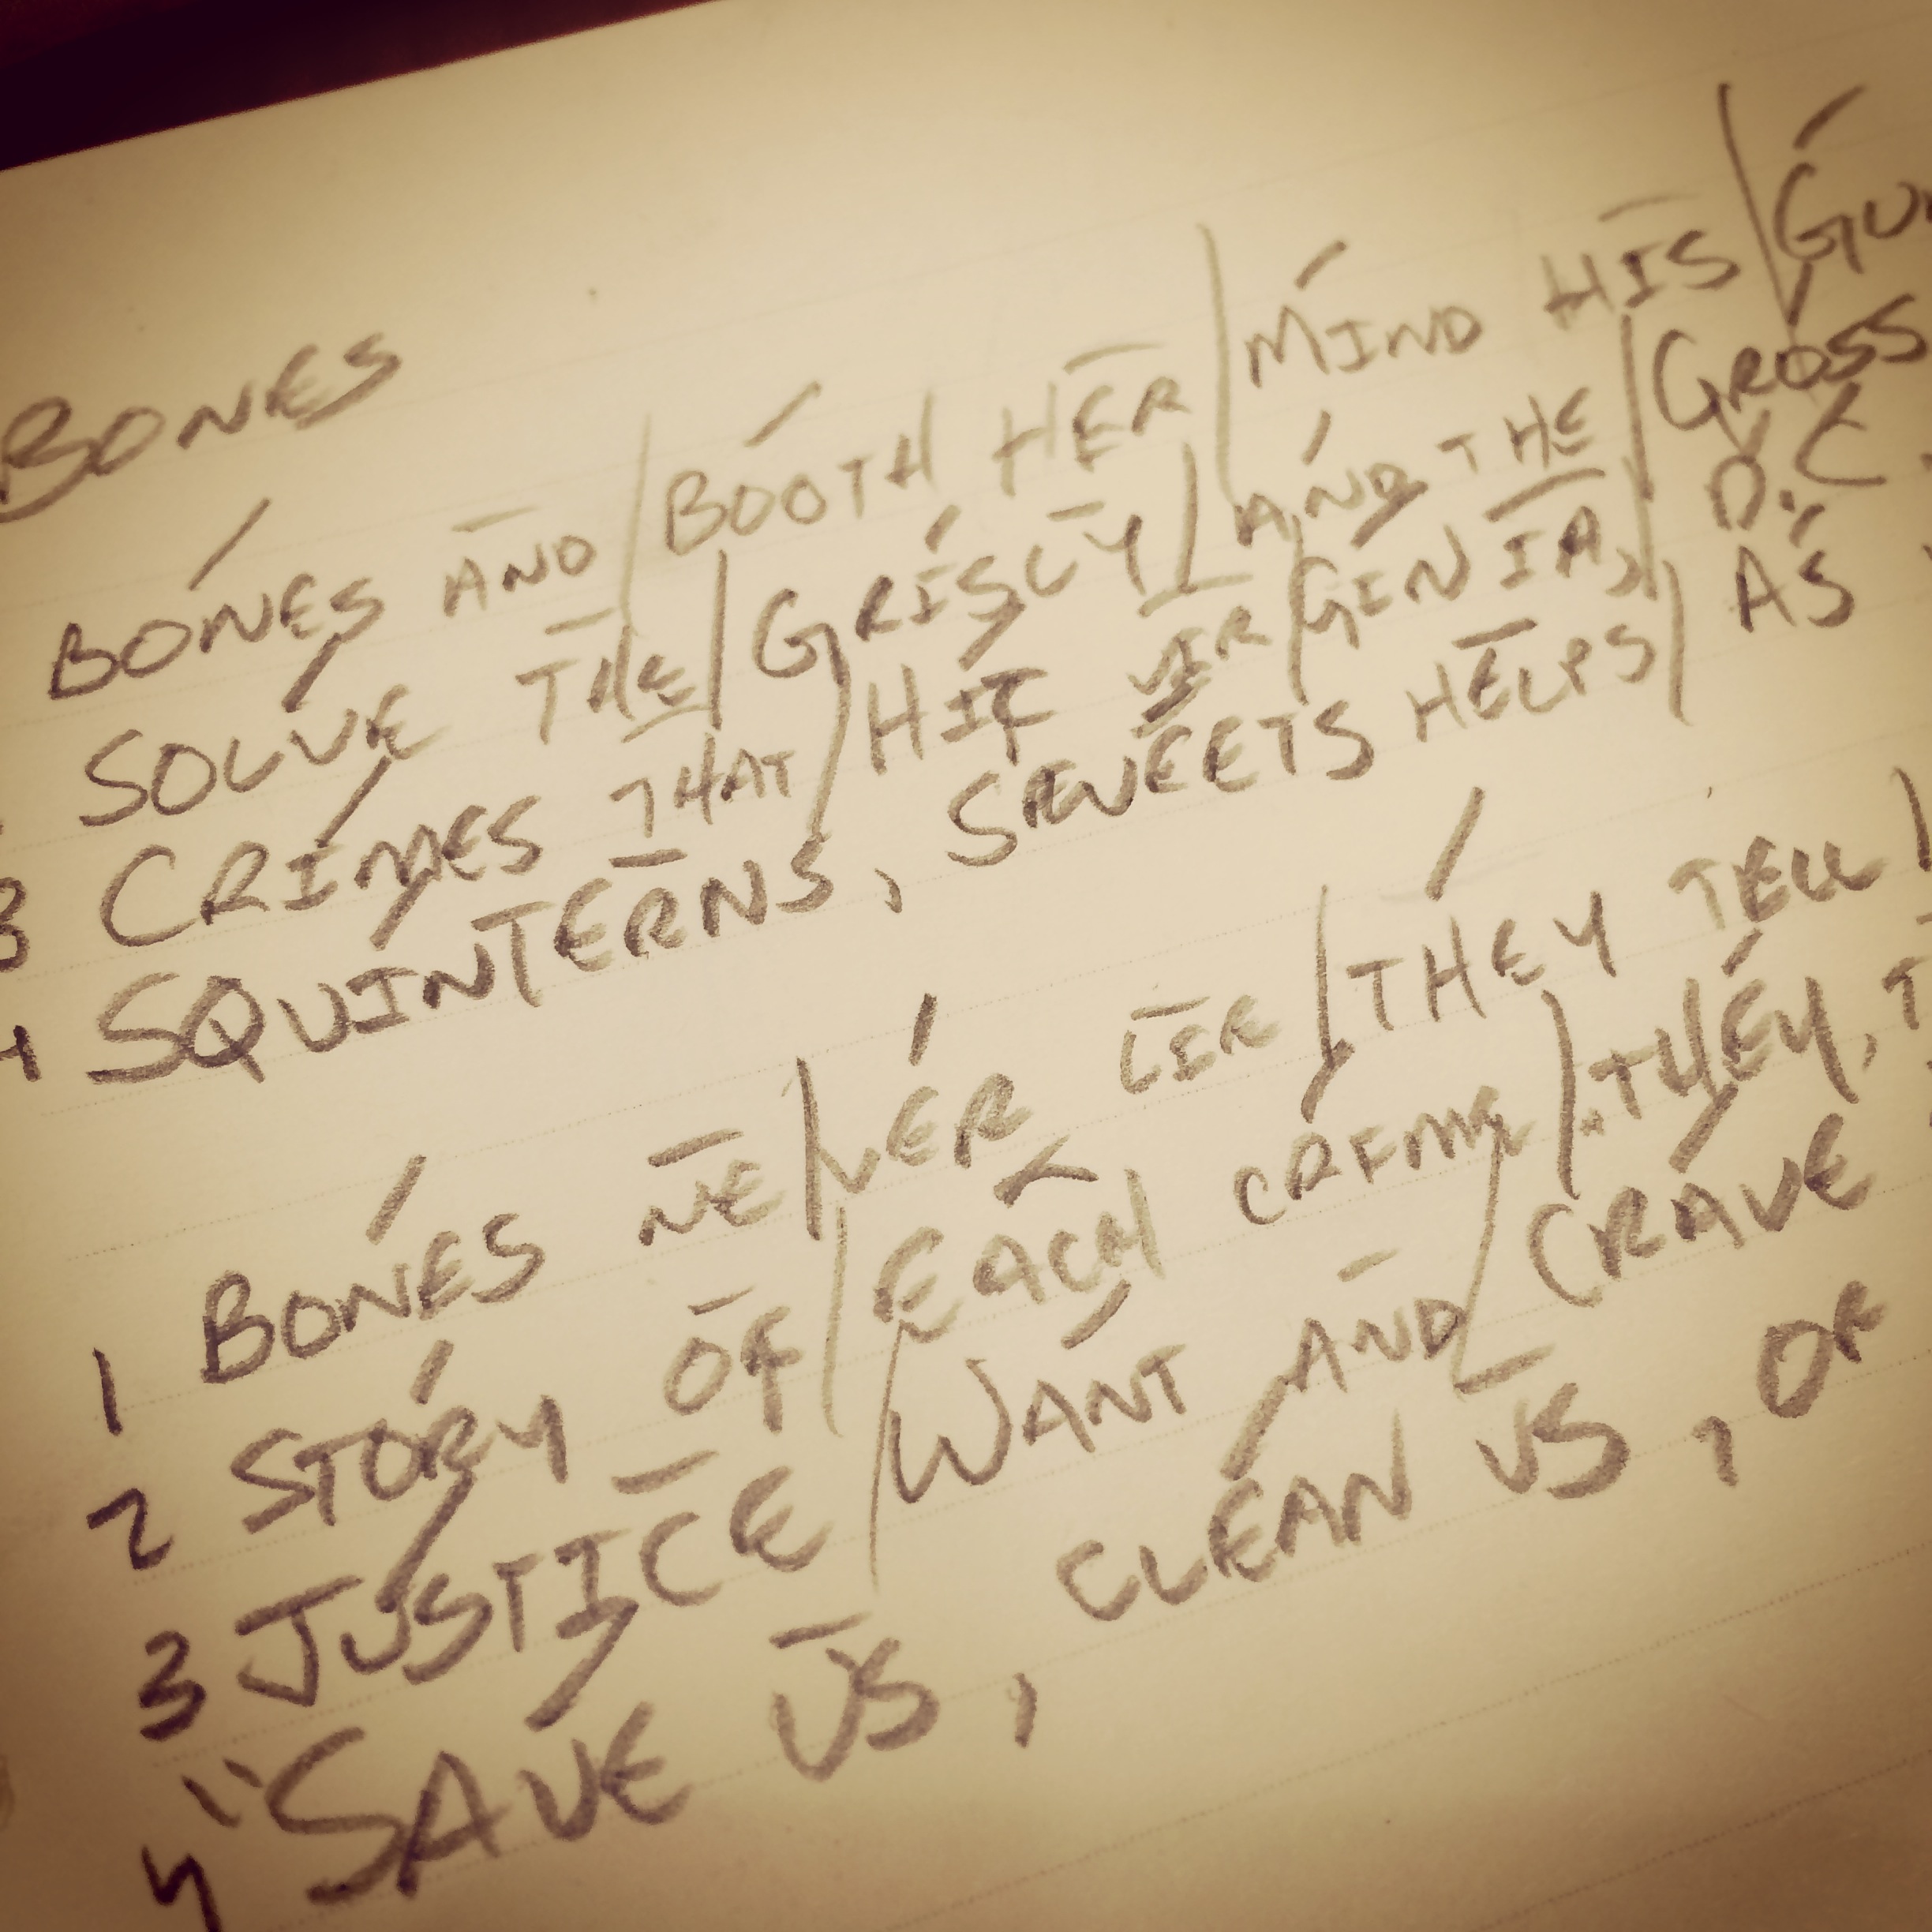 BONES
BONES AND / BOOTH HER / MIND HIS / GU
SOLVE THE / GRISLY / AND THE / GROSS
3 CRIMES THAT / HIT VIR / GINIA, / D.C.
4 SQUINTERNS, SWEETS HELPS / AS
1 BONES NE / VER LIE / THEY TELL /
2 STORY OF / EACH CRIME / THEY, T
3 JUSTICE / WANT AND / CRAVE
4 "SAVE US, CLEAN US, OR